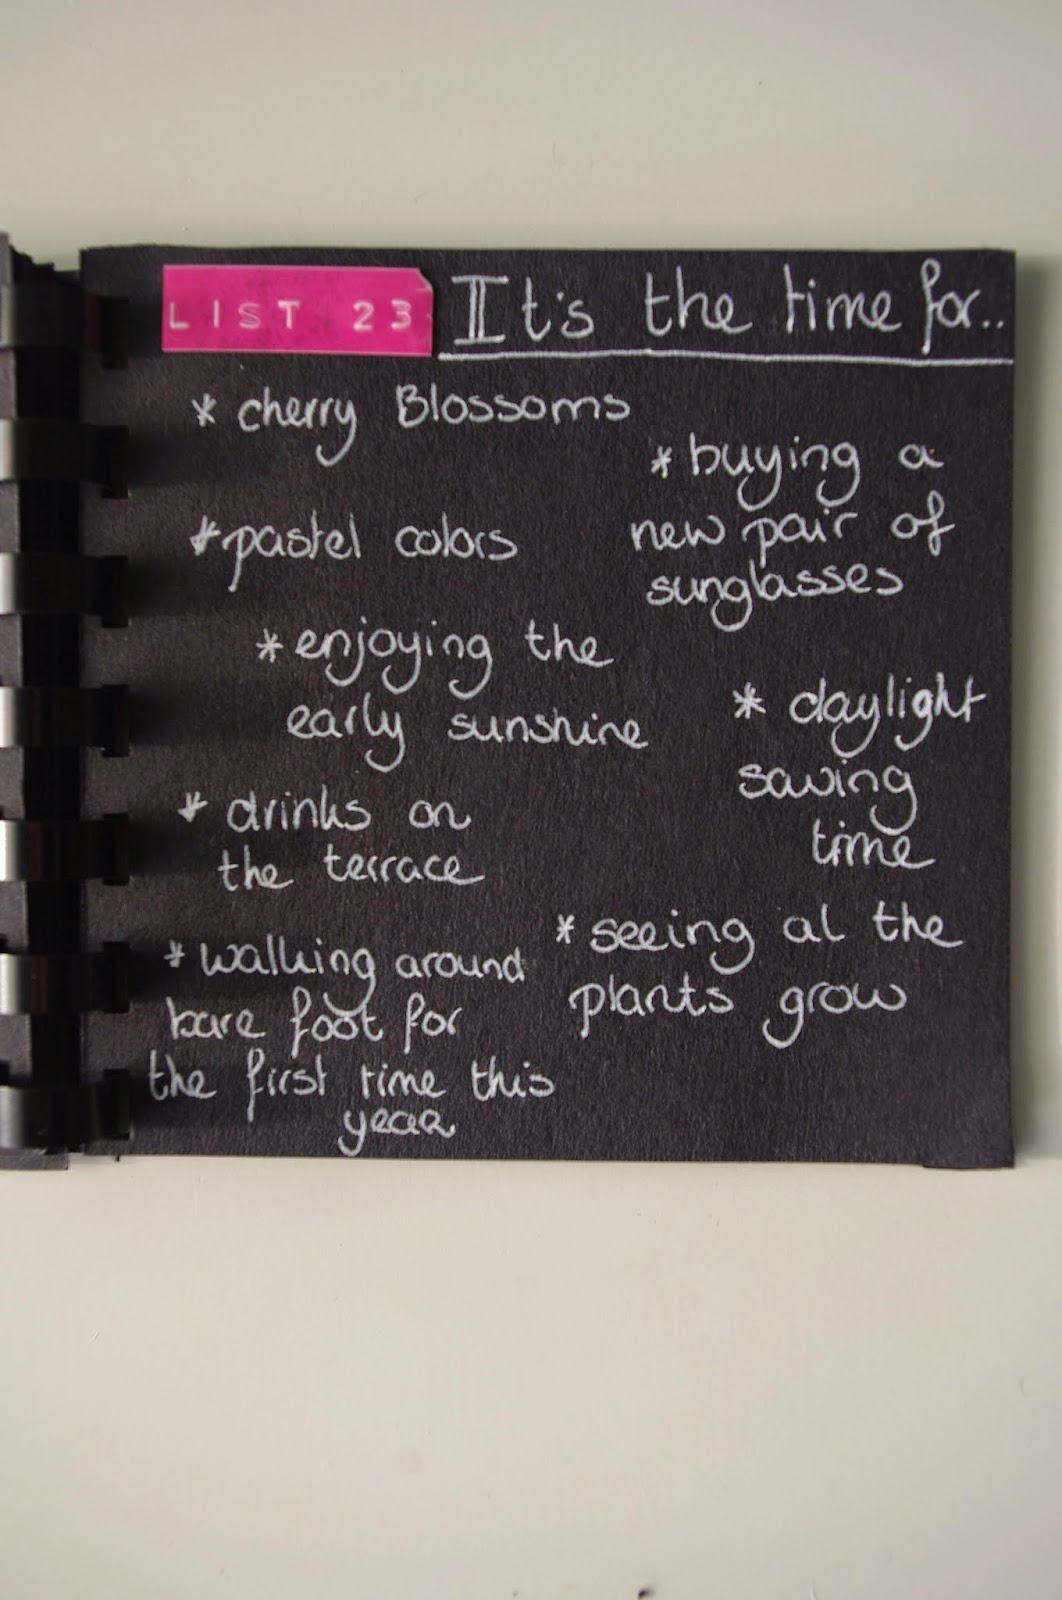 LIST 23 It's the time for..
* cherry Blossoms
* buying a
new pair of
sunglasses
* pastel colors
* enjoying the
early sunshine
* daylight
saving
time
* drinks on
the terrace
* seeing al the
plants grow
* walking around
bare foot for
the first time this
year